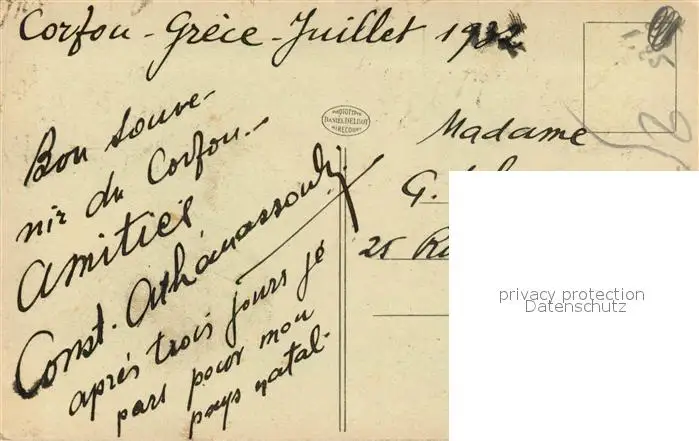 Corfou - Grèce - Juillet 1932
Bon souve-
nir du Corfou.-
Amitiés
Const. Athanassouly
après trois jours je
pars pour mon
pays natal-
PHOTOTYPIE
DANIEL DELBOY
MIRECOURT
Madame
G.
25 Ru
privacy protection
Datenschutz